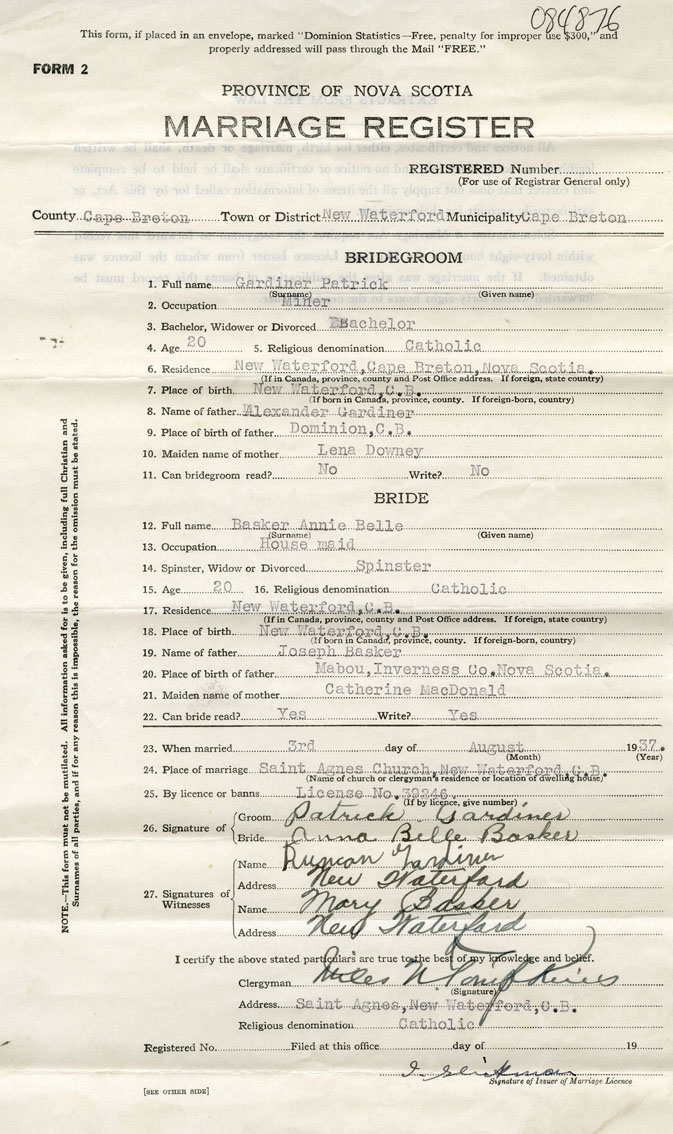 084876
This form, if placed in an envelope, marked "Dominion Statistics—Free, penalty for improper use $300," and
properly addressed will pass through the Mail "FREE."
FORM 2
PROVINCE OF NOVA SCOTIA
MARRIAGE REGISTER
REGISTERED Number
(For use of Registrar General only)
County Cape Breton Town or District New Waterford Municipality Cape Breton
BRIDEGROOM
1. Full name Gardiner Patrick
(Surname) (Given name)
2. Occupation Miner
3. Bachelor, Widower or Divorced Bachelor
4. Age 20 5. Religious denomination Catholic
6. Residence New Waterford,Cape Breton,Nova Scotia.
(If in Canada, province, county and Post Office address. If foreign, state country)
7. Place of birth New Waterford,C.B.
(If born in Canada, province, county. If foreign-born, country)
8. Name of father Alexander Gardiner
9. Place of birth of father Dominion,C.B.
10. Maiden name of mother Lena Downey
11. Can bridegroom read? No Write? No
BRIDE
12. Full name Basker Annie Belle
(Surname) (Given name)
13. Occupation House maid
14. Spinster, Widow or Divorced Spinster
15. Age 20 16. Religious denomination Catholic
17. Residence New Waterford,C.B.
(If in Canada, province, county and Post Office address. If foreign, state country)
18. Place of birth New Waterford,C.B.
(If born in Canada, province, county. If foreign-born, country)
19. Name of father Joseph Basker
20. Place of birth of father Mabou,Inverness Co.Nova Scotia.
21. Maiden name of mother Catherine MacDonald
22. Can bride read? Yes Write? Yes
23. When married 3rd day of August 1937.
(Month) (Year)
24. Place of marriage Saint Agnes Church,New Waterford,C.B.
(Name of church or clergyman's residence or location of dwelling house)
25. By licence or banns License No.39246
(If by licence, give number)
26. Signature of Groom Patrick Gardiner
Bride Anna Belle Basker
27. Signatures of Witnesses
Name Gardiner
Address New Waterford
Name Mary Basker
Address New Waterford
I certify the above stated particulars are true to the best of my knowledge and belief.
Clergyman Miles N.
(Signature)
Address Saint Agnes,New Waterford,C.B.
Religious denomination Catholic
Registered No. Filed at this office day of 19
Signature of Issuer of Marriage Licence
[SEE OTHER SIDE]
NOTE.—This form must not be mutilated. All information asked for is to be given, including full Christian and
Surnames of all parties, and if for any reason this is impossible, the reason for the omission must be stated.